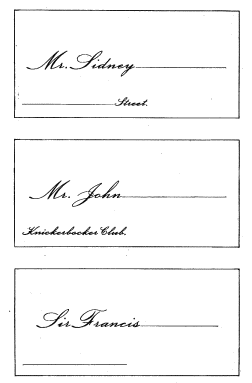 Mr. Sidney
Street.
Mr. John
Knickerbocker Club.
Sir Francis